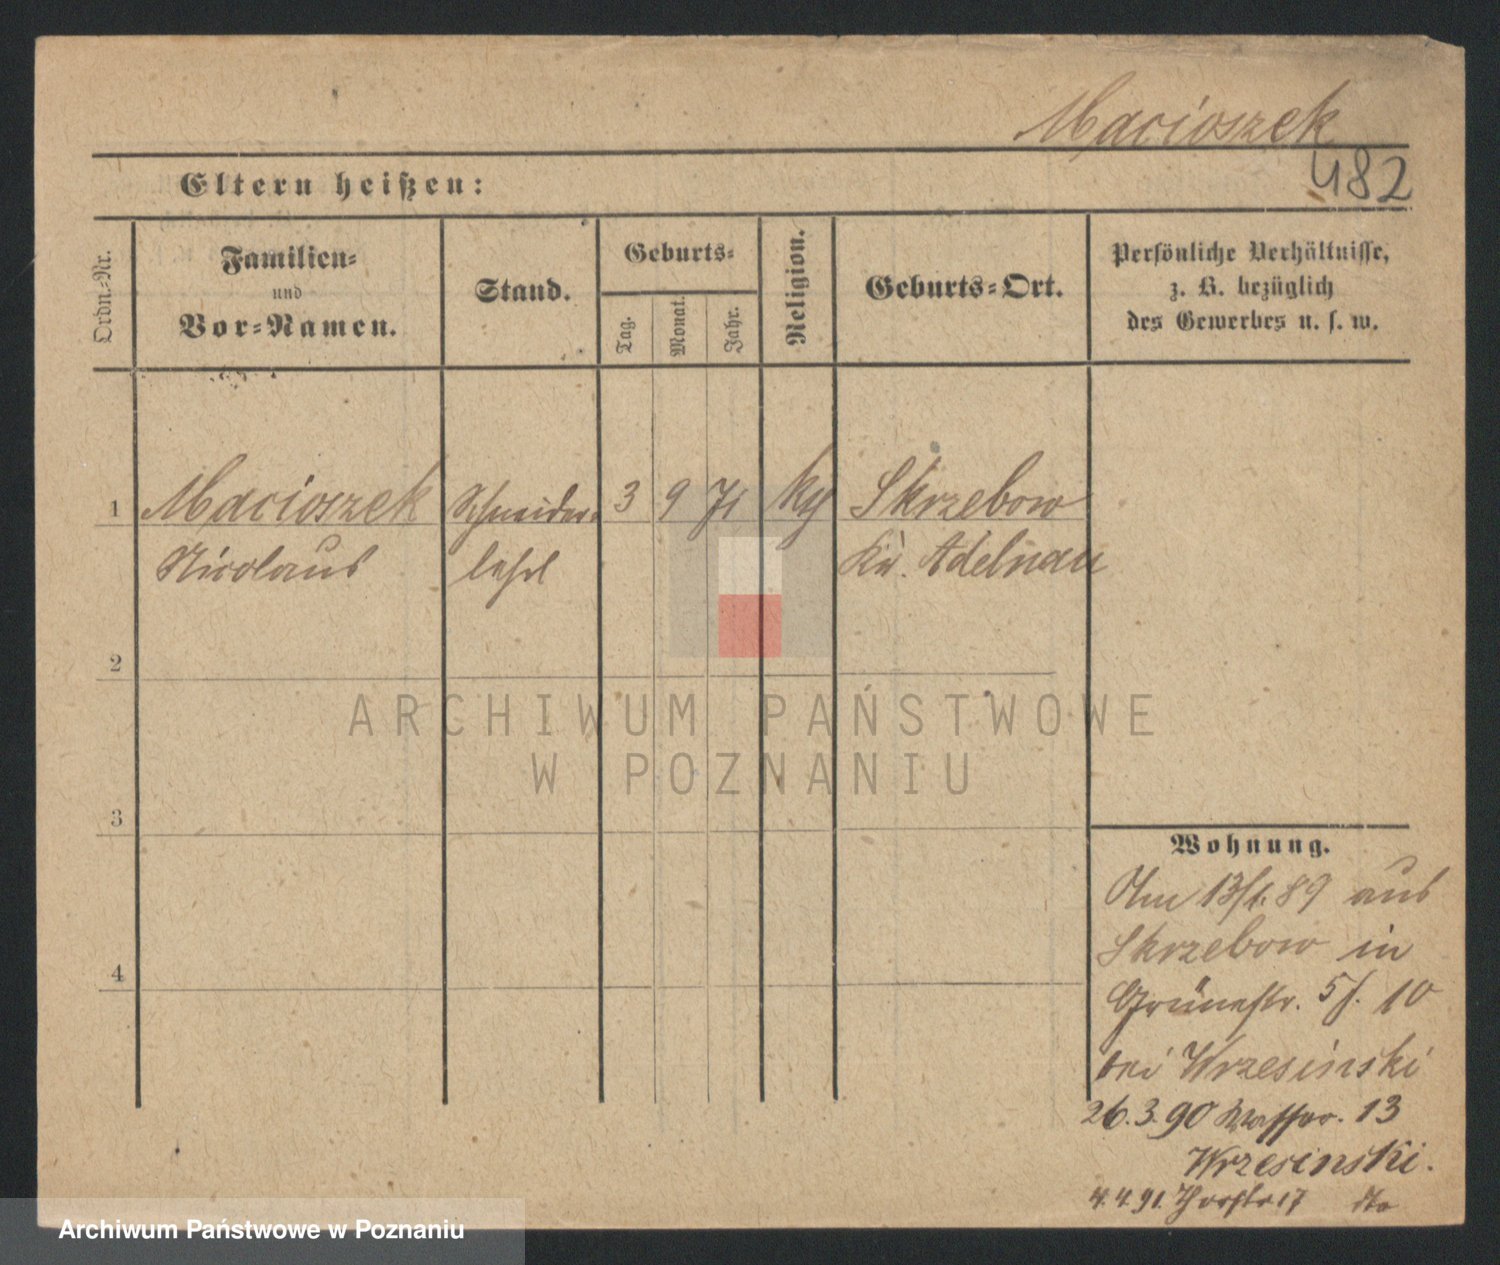 Macioszek
482
Eltern heißen:
Ordn.-Nr.
Familien-
und
Vor-Namen.
Stand.
Geburts-
Tag.
Monat.
Jahr.
Religion.
Geburts-Ort.
Persönliche Verhältnisse,
z. B. bezüglich
des Gewerbes u. s. w.
1 Macioszek Schneider- 3 9 71 kth Skrzebow
Nicolaus lehrl Kr. Adelnau
2
3
4
Wohnung.
Am 13/1.89 aus
Skrzebow in
Grünestr. 5 10
bei Wrzesinski
26.3.90 Wasser. 13
Wrzesinski.
4.4.91. Thorstr 17 dto
ARCHIWUM PAŃSTWOWE
W POZNANIU
Archiwum Państwowe w Poznaniu